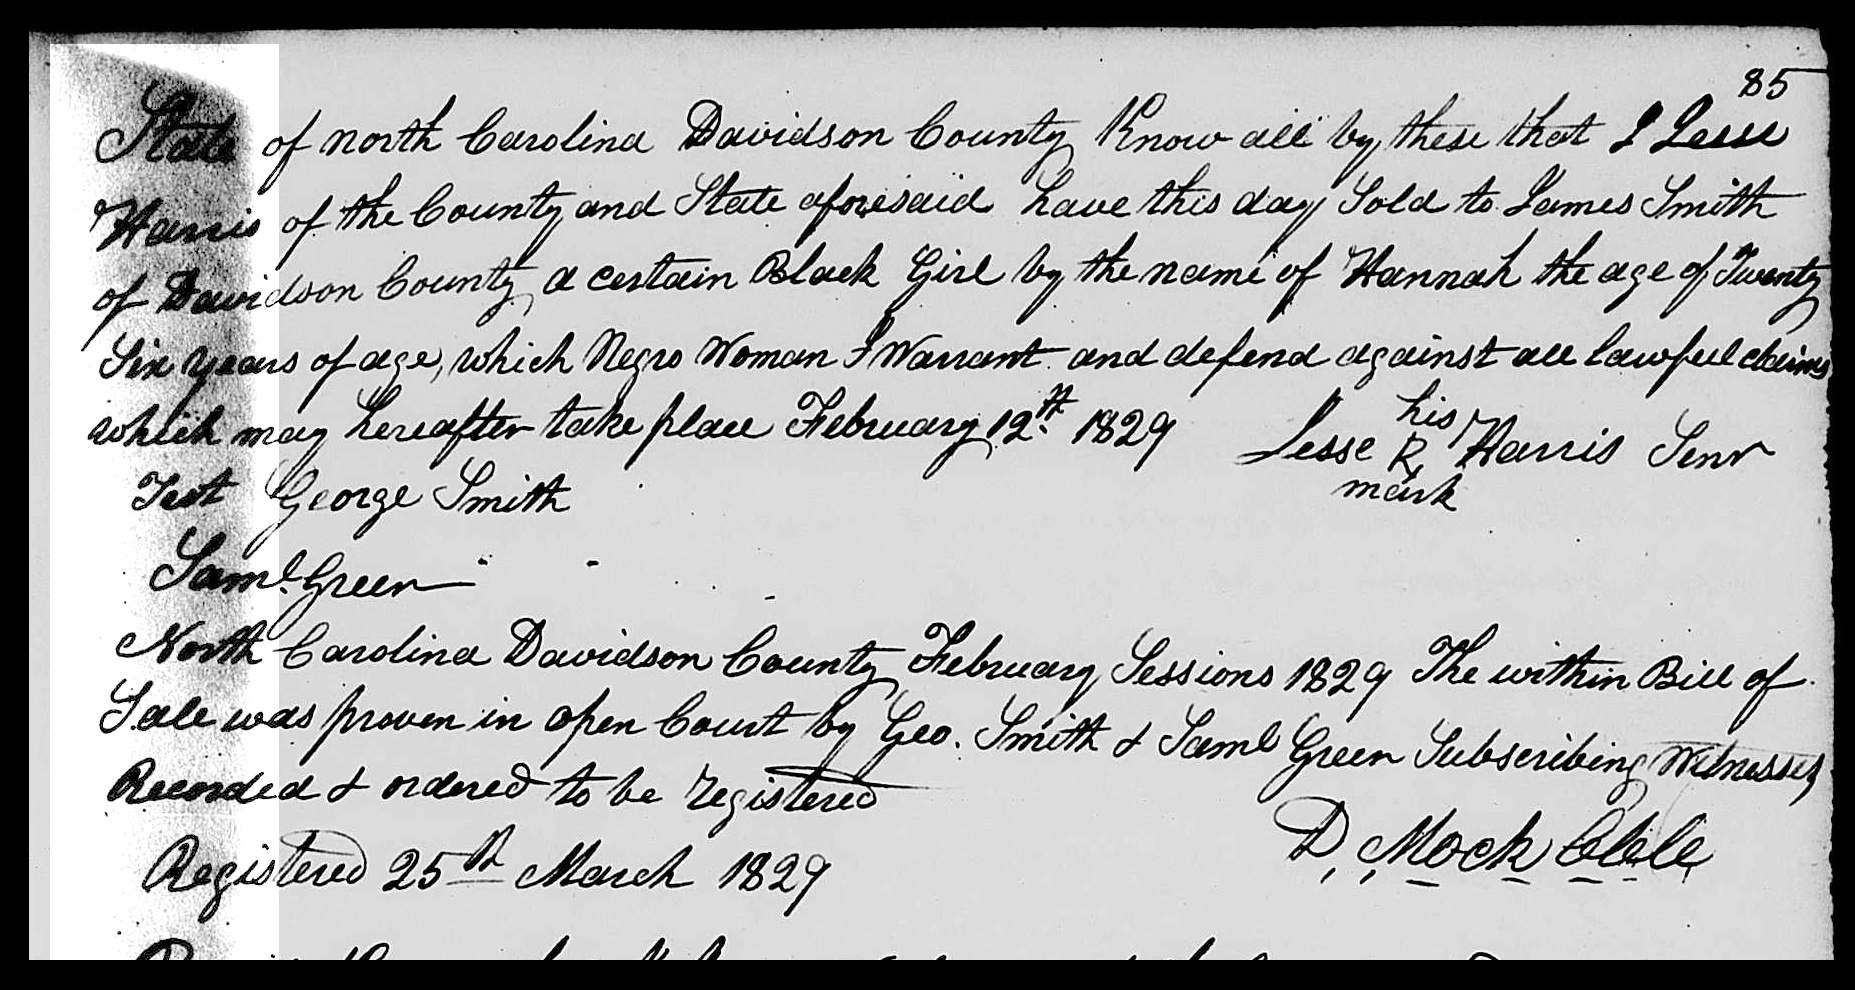 85
State of north Carolina Davidson County Know all by these that I Jesse
Harris of the County and State aforesaid have this day Sold to James Smith
of Davidson County a certain Black Girl by the name of Hannah the age of Twenty
Six years of age, which Negro Woman I Warrant and defend against all lawful claims
which may hereafter take place February 12th 1829
his
Jesse R Harris Senr
mark
Test George Smith
Saml. Green
North Carolina Davidson County February Sessions 1829 The within Bill of
Sale was proven in open Court by Geo. Smith & Saml Green Subscribing Witnesses
Recorded & ordered to be registered
D, Mock
Registered 25th March 1829